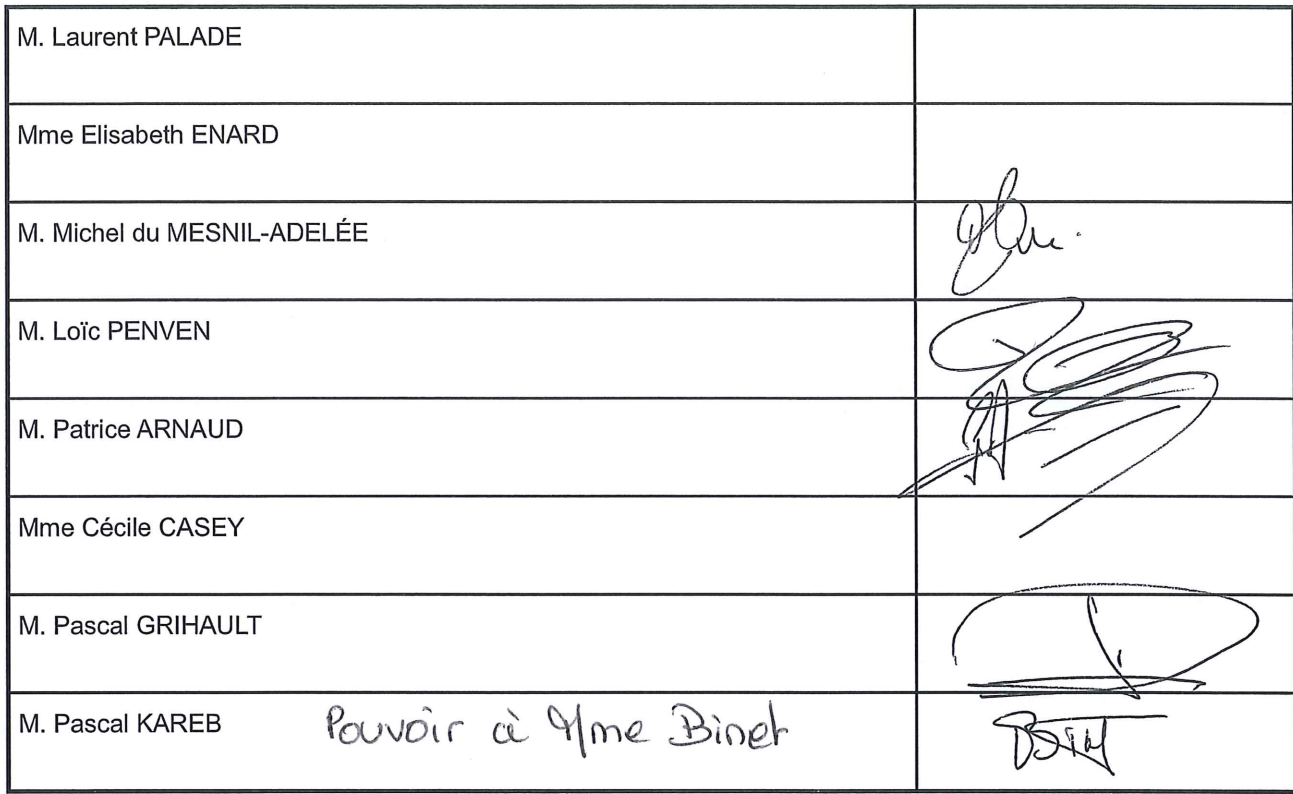 M. Laurent PALADE
Mme Elisabeth ENARD
M. Michel du MESNIL-ADELÉE
M. Loïc PENVEN
M. Patrice ARNAUD
Mme Cécile CASEY
M. Pascal GRIHAULT
M. Pascal KAREB Pouvoir à Mme Binet